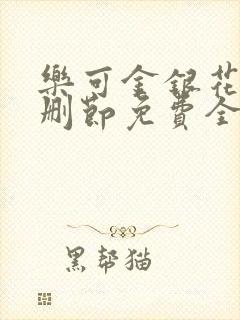 樂可金銀花
刪節免費全
黑幫猫